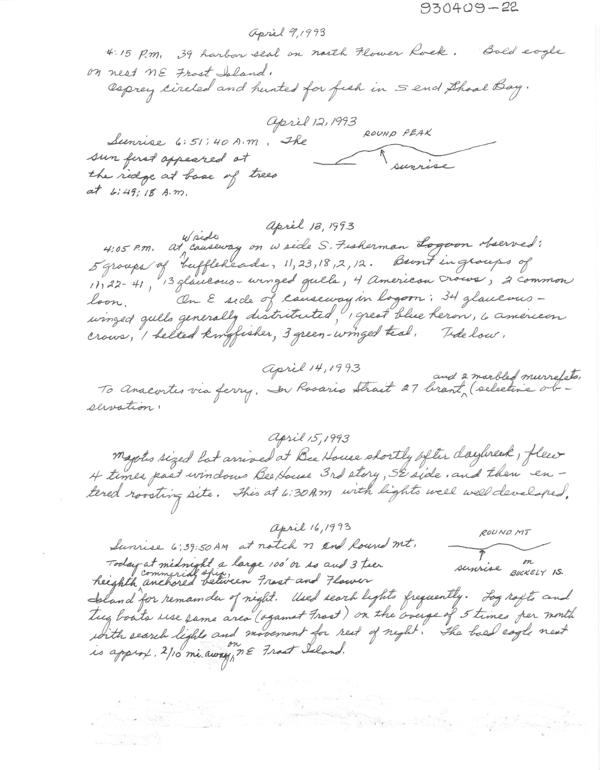 930409-22
April 9, 1993
4:15 P.M. 39 harbor seal on north Flower Rock. Bald eagle
on nest NE Frost Island.
Osprey circled and hunted for fish in S end Shoal Bay.
April 12, 1993
Sunrise 6:51:40 A.M. The
sun first appeared at
the ridge at base of trees
at 6:49:18 A.M.
ROUND PEAK
sunrise
April 13, 1993
4:05 P.M. At W side causeway on W side S. Fisherman Lagoon observed:
5 groups of buffleheads, 11, 23, 18, 2, 12. Brant in groups of
11, 22-41, 13 glaucous-winged gulls, 4 American crows, 2 common
loon. On E side of causeway in lagoon: 34 glaucous-
winged gulls generally distributed, 1 great blue heron, 6 american
crows, 1 belted kingfisher, 3 green-winged teal. Tide low.
April 14, 1993
To Anacortes via ferry. In Rosario Strait 27 brant, and 2 marbled murrelets. (selective ob-
servation.
April 15, 1993
Myotis sized bat arrived at Bee House shortly after daybreak, flew
4 times past windows Bee House 3rd story, SE side. and then en-
tered roosting site. This at 6:30 AM with lights well well developed.
April 16, 1993
Sunrise 6:39:50 AM at notch N end Round Mt.
ROUND MT
sunrise
BLAKELY IS.
Today at midnight a large 100' or so and 3 tier
heighth commercial ship, anchored between Frost and Flower
Island for remainder of night. Used search lights frequently. Log rafts and
tug boats use same area (against Frost) on the average of 5 times per month
with search lights and movement for rest of night. The bald eagle nest
is approx. 2/10 mi. away on NE Frost Island.